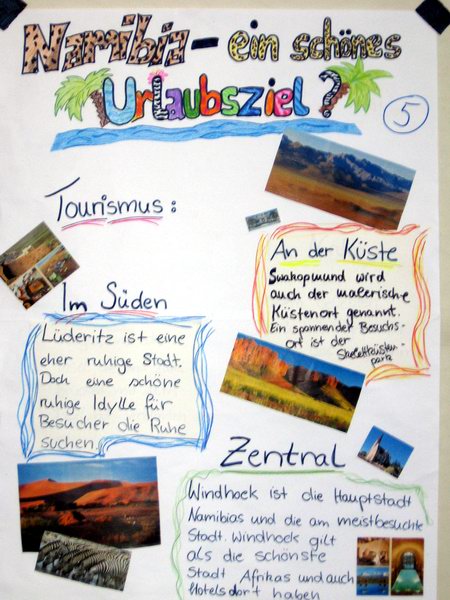 Namibia - ein schönes
Urlaubsziel?
5
Tourismus:
An der Küste
Swakopmund wird
auch der malerische
Küstenort genannt.
Ein spannender Besuchs-
ort ist der
Skelettküsten-
park
Im Süden
Lüderitz ist eine
eher ruhige Stadt.
Doch eine schöne
ruhige Idylle für
Besucher die Ruhe
suchen.
Zentral
Windhoek ist die Hauptstadt
Namibias und die am meistbesuchte
Stadt. Windhoek gilt
als die schönste
Stadt Afrikas und auch
Hotels dort haben